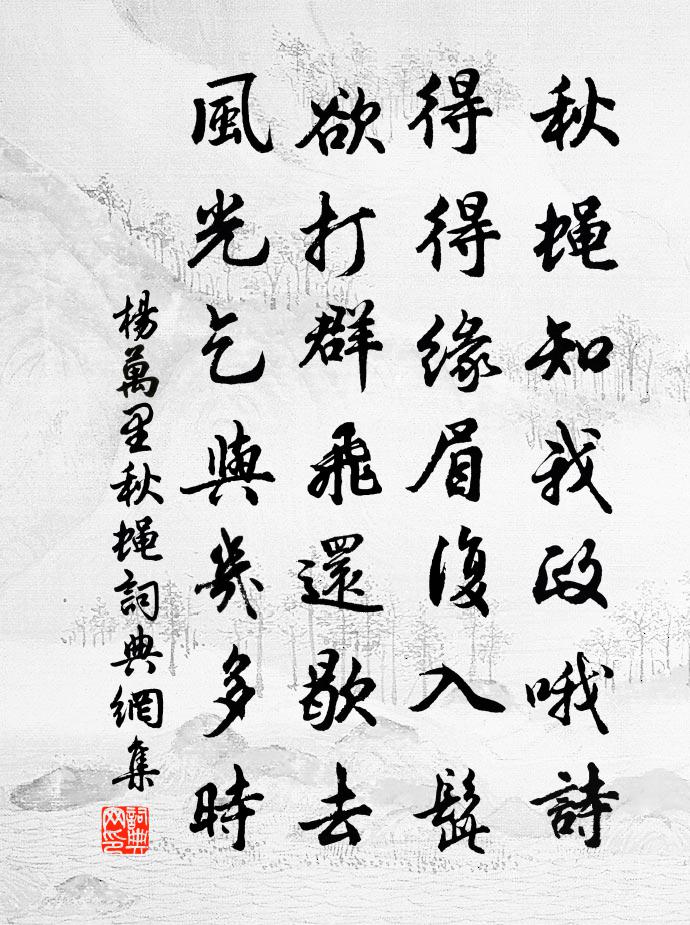 秋蝇知我政哦詩
得得緣眉復入髭
欲打群飛還歇去
風光乞與幾多時
楊萬里秋蝇詞典網集
詞典网印